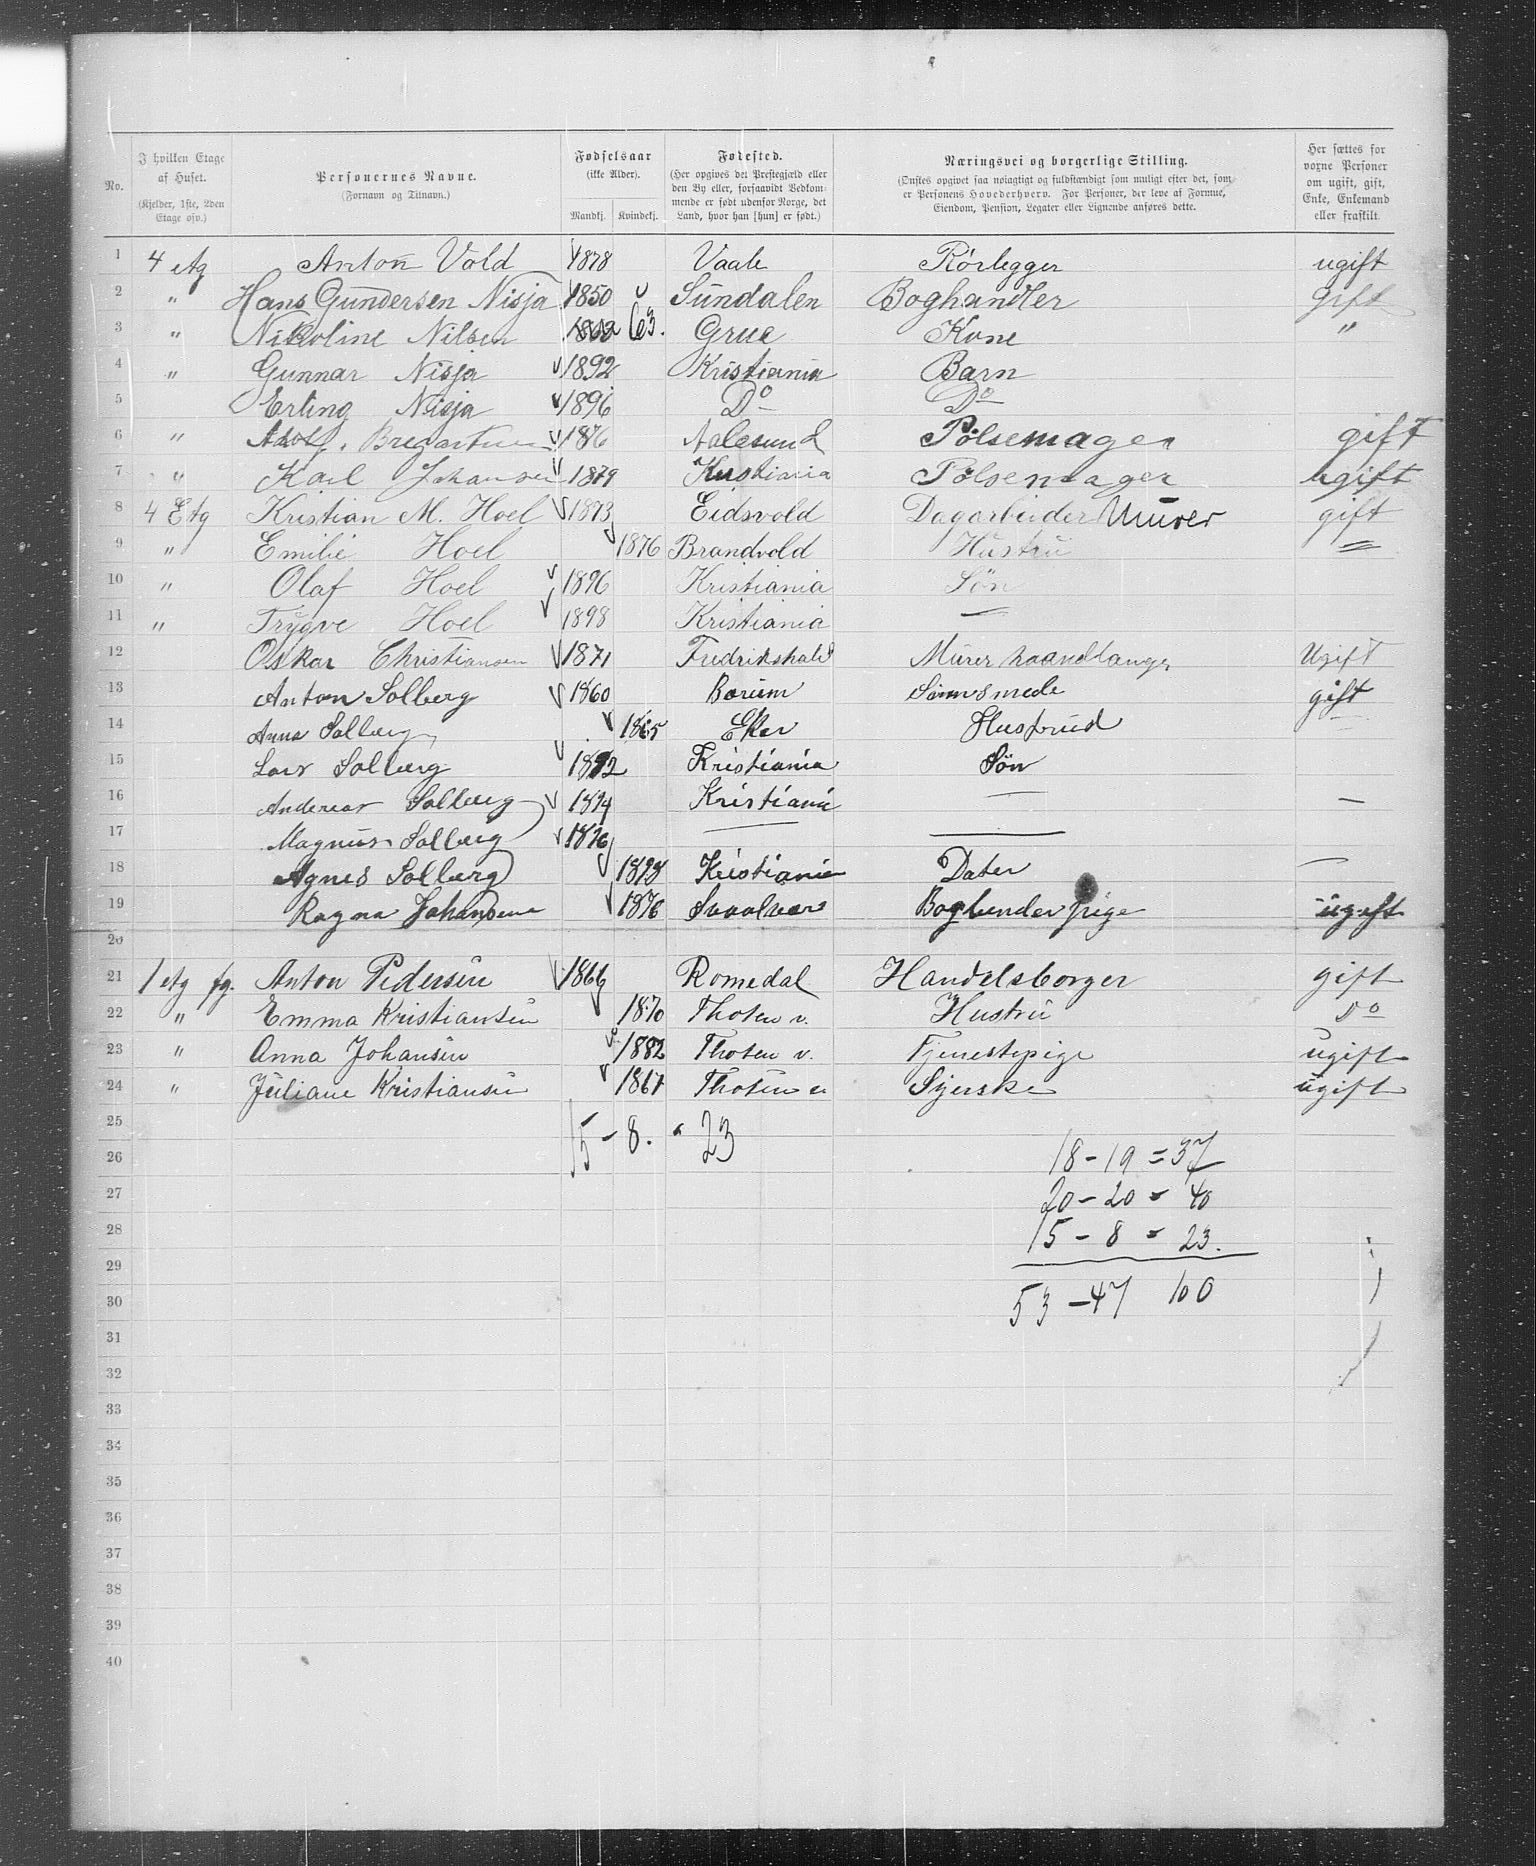 No. | I hvilken Etage af Huset. (Kjelder, 1ste, 2den Etage osv.) | Personernes Navne. (Fornavn og Tilnavn.) | Fødselsaar (ikke Alder). Mandkj. | Kvindekj. | Fødested. (Her opgives det Prestegjæld eller den By eller, forsaavidt Vedkommende er født udenfor Norge, det Land, hvor han [hun] er født.) | Næringsvei og borgerlige Stilling. (Ønskes opgivet saa nøiagtigt og fuldstændigt som muligt efter det, som er Personens Hovederhverv. For Personer, der leve af Formue, Eiendom, Pension, Legater eller Lignende anføres dette. | Her sættes for voxne Personer om ugift, gift, Enke, Enkemand eller fraskilt.
1 4 etg Anton Vold 1878 Vaale Rörlegger ugift
2 " Hans Gundersen Nisja 1850 Sundalen Boghandler gift
3 " Nikoline Nilsen 63. Grue Kone "
4 " Gunnar Nisja 1892 Kristiania Barn
5 Erling Nisja 1896 Do Do
6 " 1876 Aalesund Pølsemager gift
7 " Karl Johansen 1879 Kristiania Pølsemager ugift
8 4 Etg Kristian M. Hoel 1873 Eidsvold Dagarbeider Murer gift
9 " Emilie Hoel 1876 Brandvold Hustru =
10 " Olaf Hoel 1896 Kristiania Søn
11 " Trygve Hoel 1898 Kristiania —
12 Oskar Christiansen 1871 Fredrikshald Murer haandlanger Ugift
13 Anton Solberg 1860 Bærum gift
14 Anna Solberg 1865 Eker Hustrud —
15 Lars Solberg 1892 Kristiania Søn
16 Andereas Solberg 1894 Kristiania — —
17 Magnus Solberg 1896 — —
18 Agnes Solberg 1898 Kristiania Dater —
19 Ragna Johansene 1876 Svaalvær Bogbinder pige ugift
20
21 1 etg fg. Anton Pedersen 1866 Romedal Handelsborger gift
22 " Emma Kristiansen 1870 Thoten v. Hustru Do
23 " Anna Johansen 1882 Thoten v. Tjenestepige ugift
24 " Juliane Kristiansen 1867 Thoten v Syerske ugift
25 15 - 8. " 23
26 18 - 19 = 37
27 20 - 20 = 40
28 15 - 8 = 23.
29
30 53 - 47 100
31
32
33
34
35
36
37
38
39
40